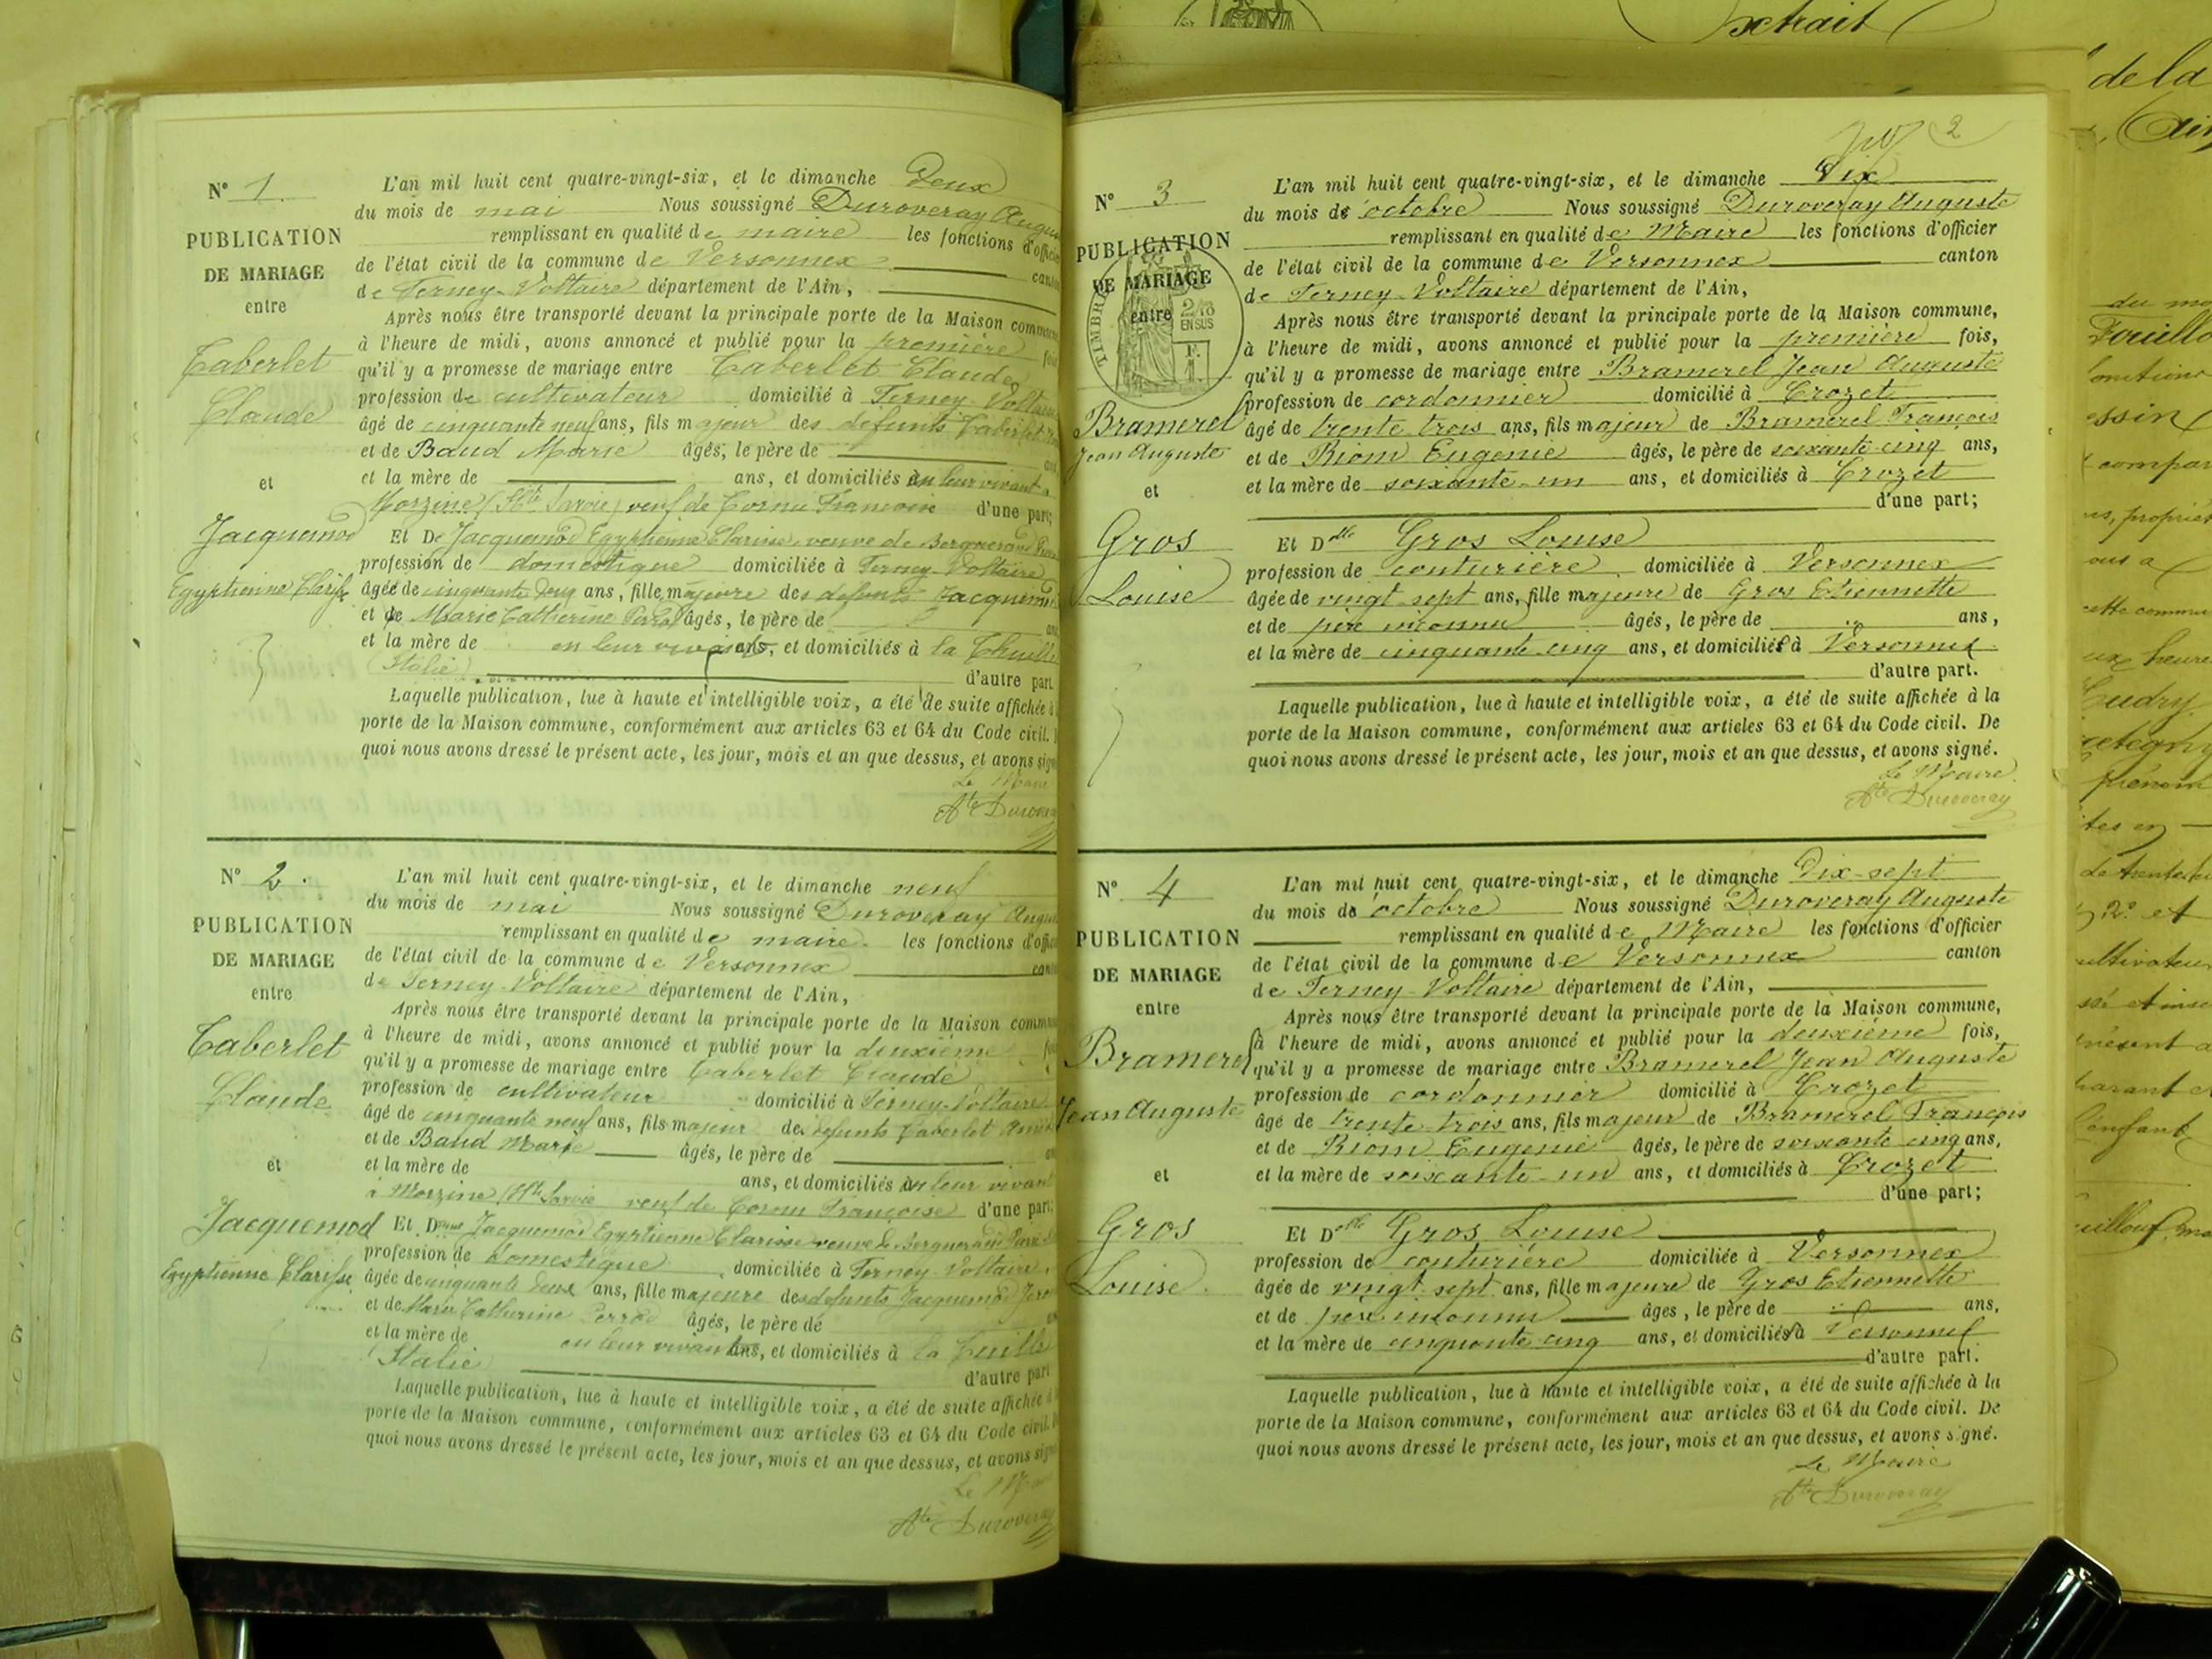 N° 1
PUBLICATION
DE MARIAGE
entre
Taberlet
Claude
et
Jacquemod
Egyptienne Clarisse
L'an mil huit cent quatre-vingt-six, et le dimanche Deux
du mois de mai Nous soussigné Duroveray
remplissant en qualité de maire les fonctions
de l'état civil de la commune de Versonnex
de Ferney-Voltaire département de l'Ain,
Après nous être transporté devant la principale porte de la Maison
à l'heure de midi, avons annoncé et publié pour la première
qu'il y a promesse de mariage entre Taberlet Claude
profession de cultivateur domicilié à Ferney-Voltaire
âgé de cinquante neuf ans, fils majeur des défunts Taberlet
et de Baud Marie âgés, le père de
et la mère de ans, et domiciliés en leur vivant à
Morzine (Hte Savoie) veuf de Cornu Françoise d'une part;
Et De Jacquemod Egyptienne Clarisse veuve de Berguerand
profession de domestique domiciliée à Ferney-Voltaire
âgée de cinquante deux ans, fille majeure des défunts Jacquemod
et de Marie Catherine Perrod âgés, le père de
et la mère de en leur vivant ans, et domiciliés à la Thuille
(Italie) d'autre part
Laquelle publication, lue à haute et intelligible voix, a été de suite affichée à
porte de la Maison commune, conformément aux articles 63 et 64 du Code civil.
quoi nous avons dressé le présent acte, les jour, mois et an que dessus, et avons
Le Maire
Ate Duroveray
N° 2.
PUBLICATION
DE MARIAGE
entre
Taberlet
Claude
et
Jacquemod
Egyptienne Clarisse
L'an mil huit cent quatre-vingt-six, et le dimanche neuf
du mois de mai Nous soussigné Duroveray
remplissant en qualité de maire. les fonctions
de l'état civil de la commune de Versonnex
de Ferney-Voltaire département de l'Ain,
Après nous être transporté devant la principale porte de la Maison
à l'heure de midi, avons annoncé et publié pour la deuxième
qu'il y a promesse de mariage entre Taberlet Claude
profession de cultivateur domicilié à Ferney-Voltaire
âgé de cinquante neuf ans, fils majeur des défunts Taberlet
et de Baud Marie âgés, le père de
et la mère de ans, et domiciliés en leur vivant
à Morzine (Hte Savoie veuf de Cornu Françoise d'une part;
Et Dme Jacquemod Egyptienne Clarisse veuve de Berguerand
profession de domestique domiciliée à Ferney-Voltaire
âgée de cinquante deux ans, fille majeure des défunts Jacquemod
et de Marie Catherine Perrod âgés, le père de
et la mère de en leur vivant ans, et domiciliés à la Tuille
Italie d'autre part
Laquelle publication, lue à haute et intelligible voix, a été de suite affichée à
porte de la Maison commune, conformément aux articles 63 et 64 du Code civil.
quoi nous avons dressé le présent acte, les jour, mois et an que dessus, et avons
Le
Ate Duroveray
2
N° 3
PUBLICATION
DE MARIAGE
entre
TIMBRE
2/10
EN SUS
Bramerel
Jean Auguste
et
Gros
Louise
L'an mil huit cent quatre-vingt-six, et le dimanche Dix
du mois de octobre Nous soussigné Duroveray Auguste
remplissant en qualité de Maire les fonctions d'officier
de l'état civil de la commune de Versonnex canton
de Ferney-Voltaire département de l'Ain,
Après nous être transporté devant la principale porte de la Maison commune,
à l'heure de midi, avons annoncé et publié pour la première fois,
qu'il y a promesse de mariage entre Bramerel Jean Auguste
profession de cordonnier domicilié à Crozet
âgé de trente trois ans, fils majeur de Bramerel François
et de Riom Eugenie âgés, le père de soixante-cinq ans,
et la mère de soixante-un ans, et domiciliés à Crozet
d'une part;
Et Dlle Gros Louise
profession de couturière domiciliée à Versonnex
âgée de vingt sept ans, fille majeure de Gros Etiennette
et de père inconnu âgés, le père de ans,
et la mère de cinquante cinq ans, et domiciliés à Versonnex
d'autre part.
Laquelle publication, lue à haute et intelligible voix, a été de suite affichée à la
porte de la Maison commune, conformément aux articles 63 et 64 du Code civil. De
quoi nous avons dressé le présent acte, les jour, mois et an que dessus, et avons signé.
Le Maire
Ate Duroveray
N° 4
PUBLICATION
DE MARIAGE
entre
Bramerel
Jean Auguste
et
Gros
Louise
L'an mil huit cent quatre-vingt-six, et le dimanche Dix-sept
du mois de octobre Nous soussigné Duroveray Auguste
remplissant en qualité de Maire les fonctions d'officier
de l'état civil de la commune de Versonnex canton
de Ferney-Voltaire département de l'Ain,
Après nous être transporté devant la principale porte de la Maison commune,
à l'heure de midi, avons annoncé et publié pour la deuxième fois,
qu'il y a promesse de mariage entre Bramerel Jean Auguste
profession de cordonnier domicilié à Crozet
âgé de trente trois ans, fils majeur de Bramerel François
et de Riom Eugenie âgés, le père de soixante cinq ans,
et la mère de soixante-un ans, et domiciliés à Crozet
d'une part;
Et Dlle Gros Louise
profession de couturière domiciliée à Versonnex
âgée de vingt sept ans, fille majeure de Gros Etiennette
et de père inconnu âgés, le père de ans,
et la mère de cinquante cinq ans, et domiciliés à Versonnex
d'autre part.
Laquelle publication, lue à haute et intelligible voix, a été de suite affichée à la
porte de la Maison commune, conformément aux articles 63 et 64 du Code civil. De
quoi nous avons dressé le présent acte, les jour, mois et an que dessus, et avons signé.
Le Maire
Ate Duroveray
Extrait
de la